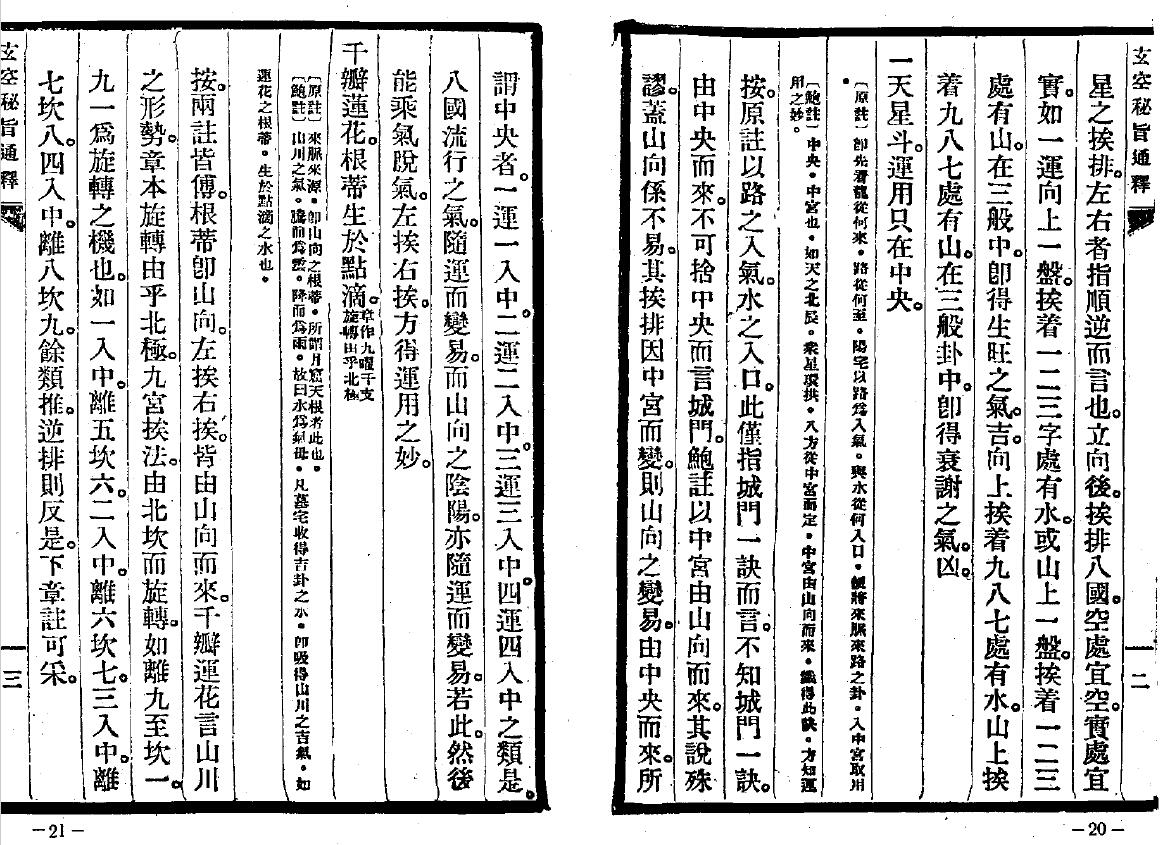 玄空秘旨通釋
二
星之挨排。左右者指順逆而言也。立向後。挨排八國。空處宜空。實處宜
實。如一運向上一盤。挨着一二三字處有水。或山上一盤。挨着一二三
處有山。在三般中。卽得生旺之氣。吉。向上挨着九八七處有水。山上挨
着九八七處有山。在三般卦中。卽得衰謝之氣。凶。
一天星斗。運用只在中央。
〔原註〕卽先看龍從何來。路從何至。陽宅以路爲入氣。與水從何入口。便將來脈來路之卦。入中宮取用
。
〔鮑註〕中央。中宮也。如天之北辰。衆星環拱。八方從中宮而定。中宮由山向而來。識得此訣。方知運
用之妙。
按。原註以路之入氣。水之入口。此僅指城門一訣而言。不知城門一訣。
由中央而來。不可捨中央而言城門。鮑註以中宮由山向而來。其說殊
謬。蓋山向係不易。其挨排因中宮而變。則山向之變易。由中央而來。所
—20—
謂中央者。一運一入中。二運二入中。三運三入中。四運四入中之類是。
八國流行之氣。隨運而變易。而山向之陰陽。亦隨運而變易。若此。然後
能乘氣脫氣。左挨右挨。方得運用之妙。
千瓣蓮花。根蒂生於點滴。章作九曜干支旋轉由乎北極
〔原註〕來脈來源。卽山向之根蒂。所謂月窟天根者此也。
〔鮑註〕山川之氣。騰而爲雲。降而爲雨。故曰水爲氣母。凡墓宅收得吉卦之水。卽吸得山川之吉氣。如
蓮花之根蒂。生於點滴之水也。
按。兩註皆傅。根蒂卽山向。左挨右挨。皆由山向而來。千瓣蓮花言山川
之形勢。章本旋轉由乎北極。九宮挨法。由北坎而旋轉。如離九至坎一。
九一爲旋轉之機也。如一入中。離五坎六。二入中。離六坎七。三入中。離
七坎八。四入中。離八坎九。餘類推。逆排則反是。下章註可采。
玄空秘旨通釋
三
—21—